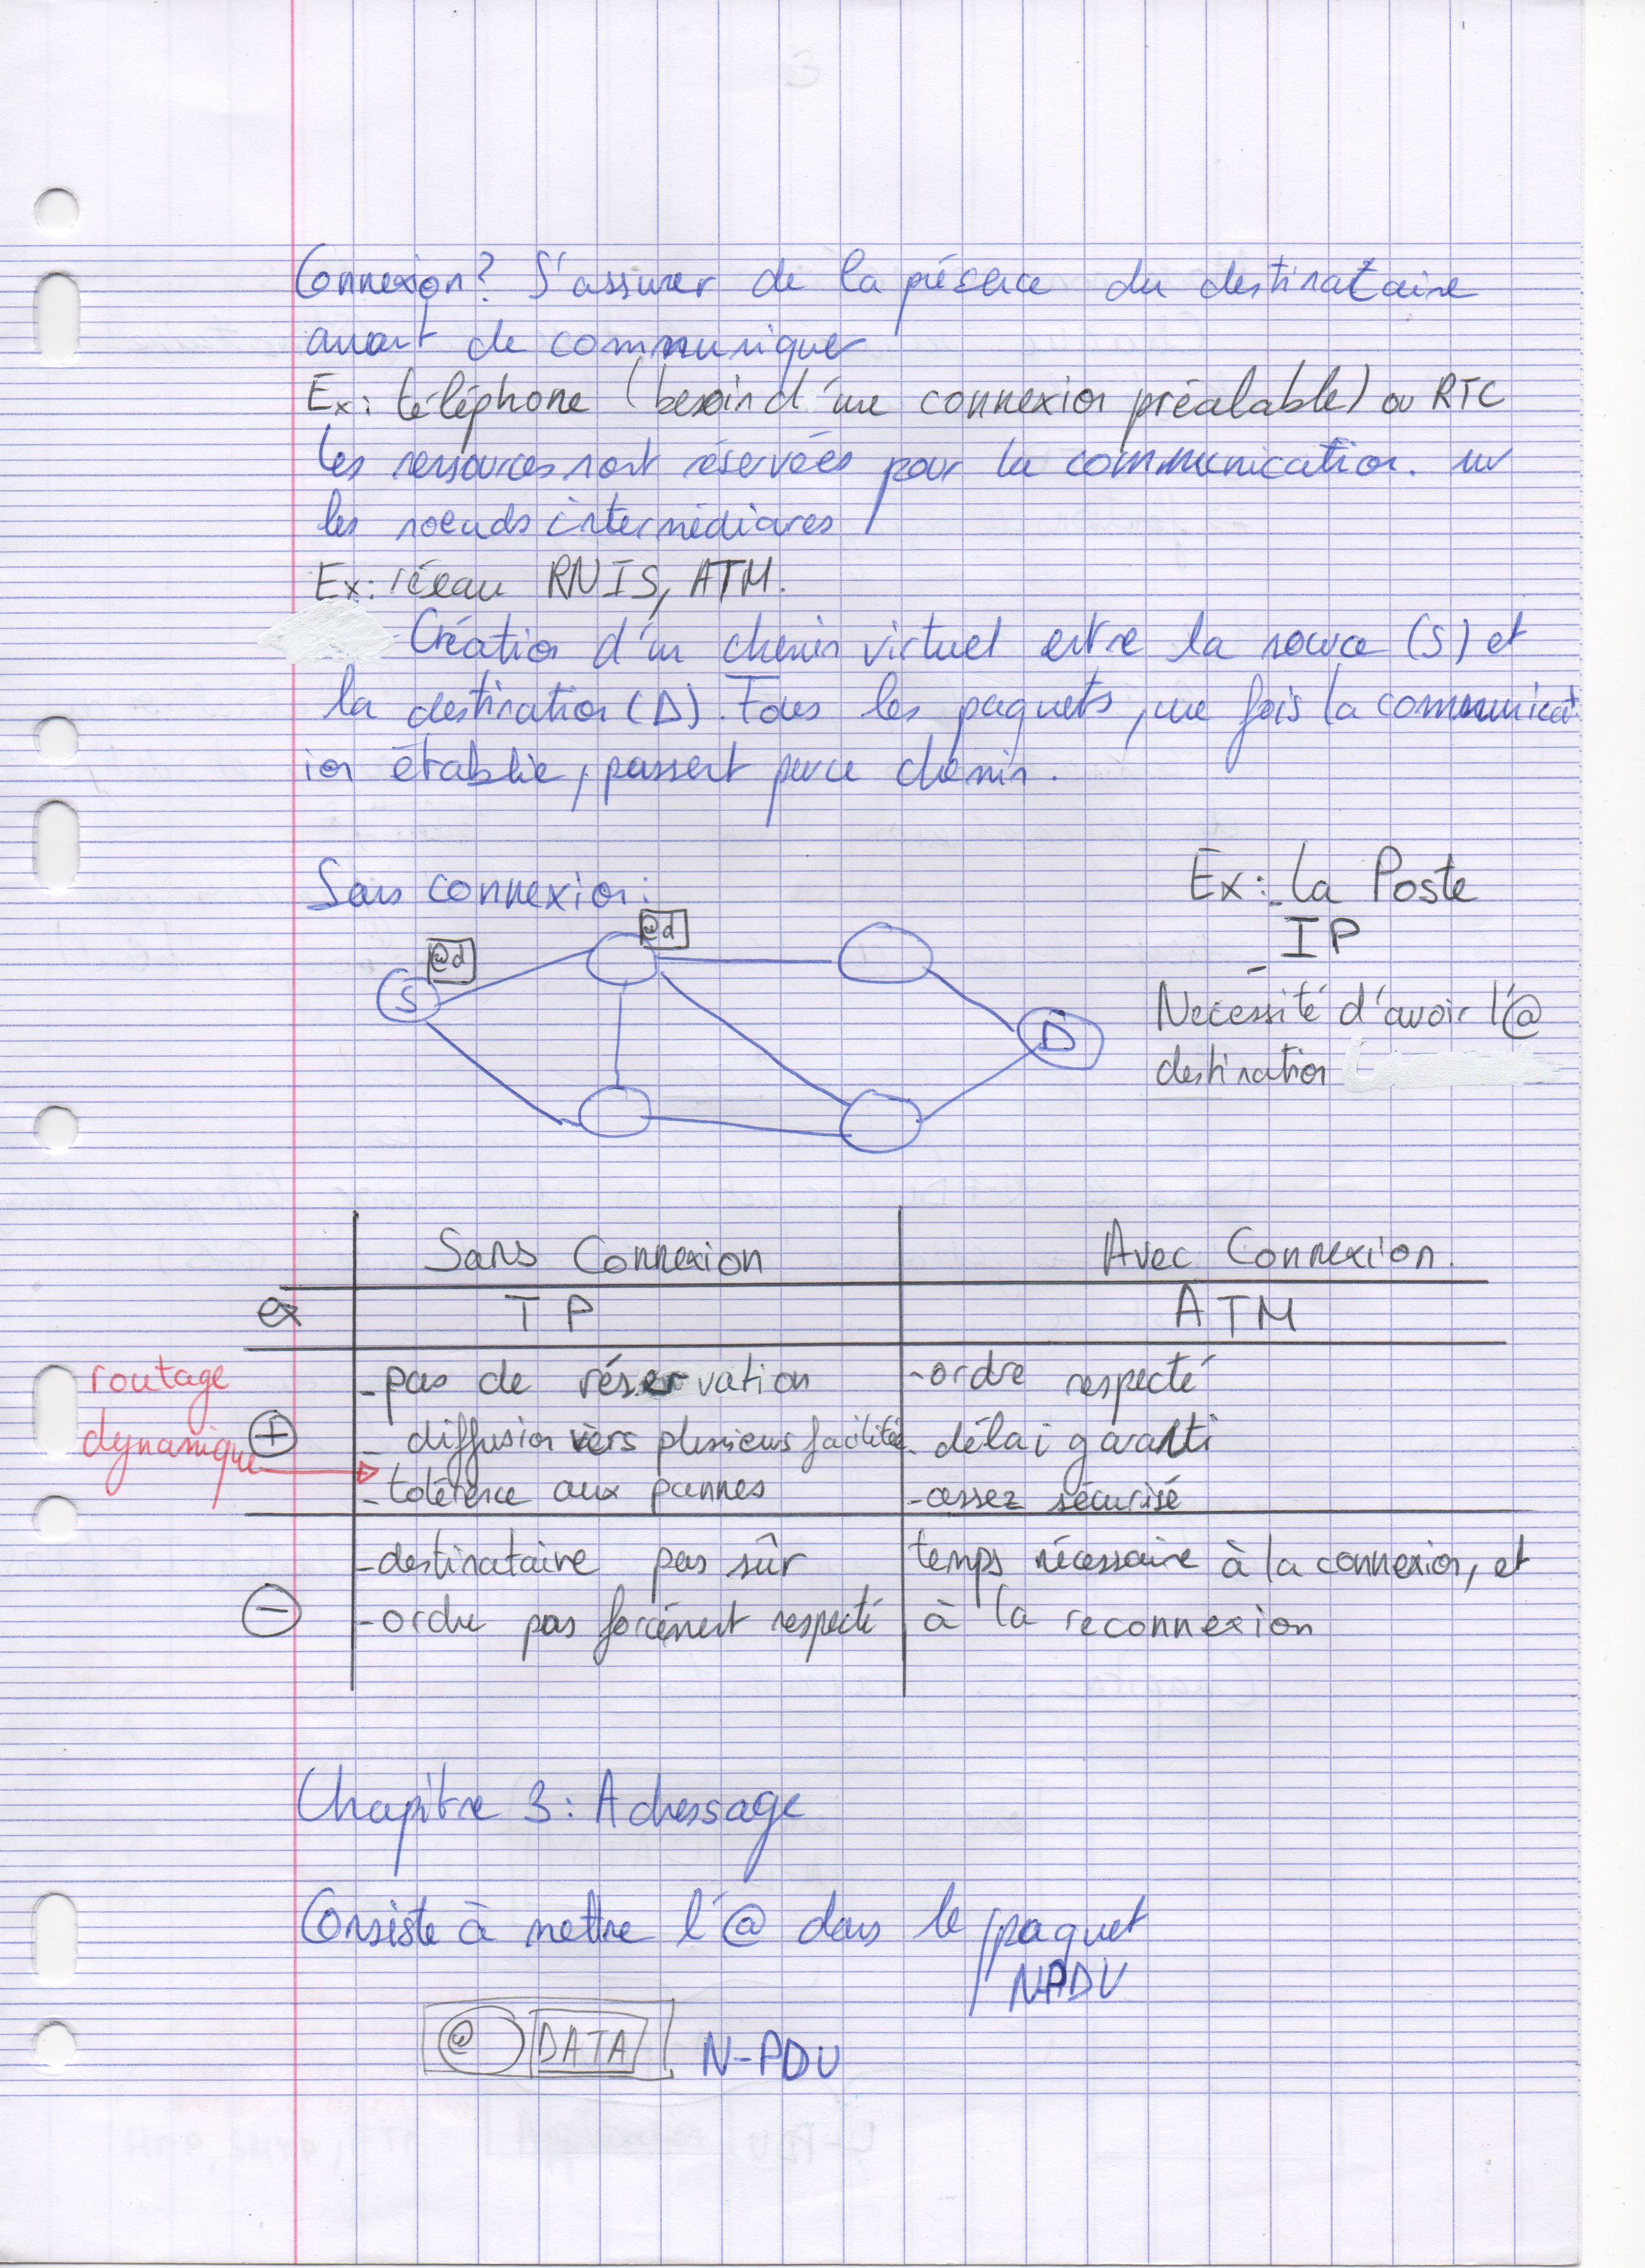 Connexion? S'assurer de la présence du destinataire
avant de communiquer
Ex: téléphone (besoin d'une connexion préalable) ou RTC
Les ressources sont réservées pour la communication. sur
les noeuds intermédiares
Ex: réseau RNIS, ATM.
Création d'un chemin virtuel entre la source (S) et
la destination (D). Tous les paquets, une fois la communicat
ion établie, passent par ce chemin.
Sans connexion:
Ex: - La Poste
- IP
Necessité d'avoir l'@
destination
@d
@d
S
D
Sans Connexion Avec Connexion.
ex IP ATM
routage
dynamique
+
- pas de réservation
- diffusion vers plusieurs facilitée
- tolérence aux pannes
- ordre respecté
- délai garanti
- assez sécurisé
-
- destinataire pas sûr
- ordre pas forcément respecté
temps nécessaire à la connexion, et
à la reconnexion
Chapitre 3: Adressage
Consiste à mettre l'@ dans le paquet
NPDU
@ DATA N-PDU